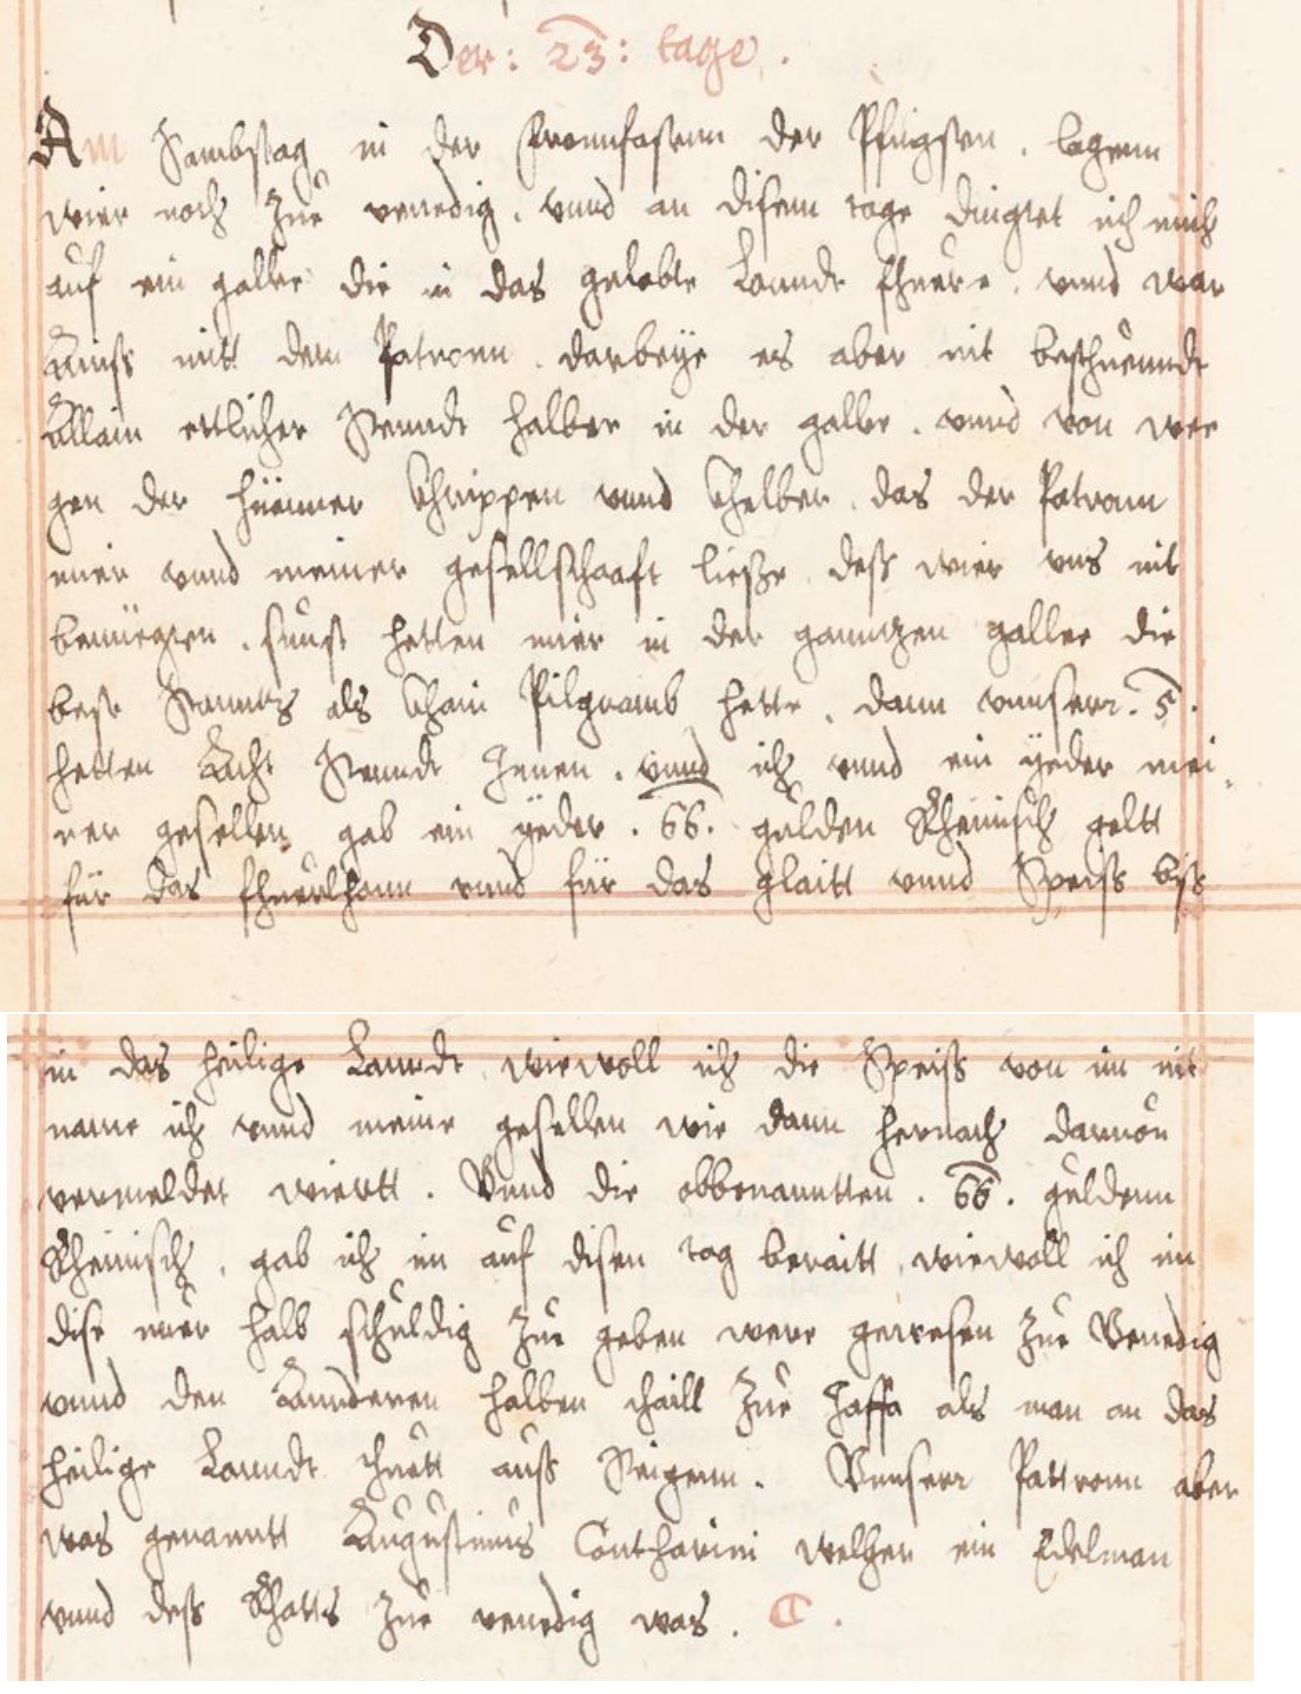 Der: 23: tage.
Am Sambstag in der Fronnfasten der Pfingsten. lagenn
wier noch zue venedig. vnnd an disenn tage dingtet ich mich
auf ein gallee die in das gelobte Lanndt fhuere. vnnd war
Ainss mitt dem Patronn. darbeÿe es aber nit beschuenndt
Allain ettlicher Stenndt halber in der gallee. vnnd von we
gen der Hüenner Khrippen vnnd Khelber. das der Patronn
mier vnnd meiner gesellschaafft liesse dess wier vns nit
benüegten. sunst hetten mier in der ganntzen gallee die
best Stanntz als Khain Pilgramb hette. dann vnnserr. 5.
hetten Acht Stenndt Innen. vnnd ich vnnd ein ÿeder mei
ner gesellen gab ein ÿeder. 66. gulden Rheinisch geltt
für das fhuerlhonn vnnd für das glaitt vnnd Speiss biss
in das heilige Lanndt. wiewoll ich die Speiss von im nit
name ich vnnd meine gesellen wie dann hernach daruon
vermeldet wiertt. Vnnd die obbenanntten. 66. guldenn
Rheinisch. gab ich im auf disen tag beraitt. wiewoll ich im
dise nuer halb schuldig zue geben were gewesen zue Venedig
vnnd den Annderen halben thaill zue Jaffa als man an das
heilige Lanndt thuett auss Steigenn. Vnnserr Pattronn aber
was genanntt Augustinus Conttharini welher ein Edelman
vnnd dess Rhatts zue venedig was.